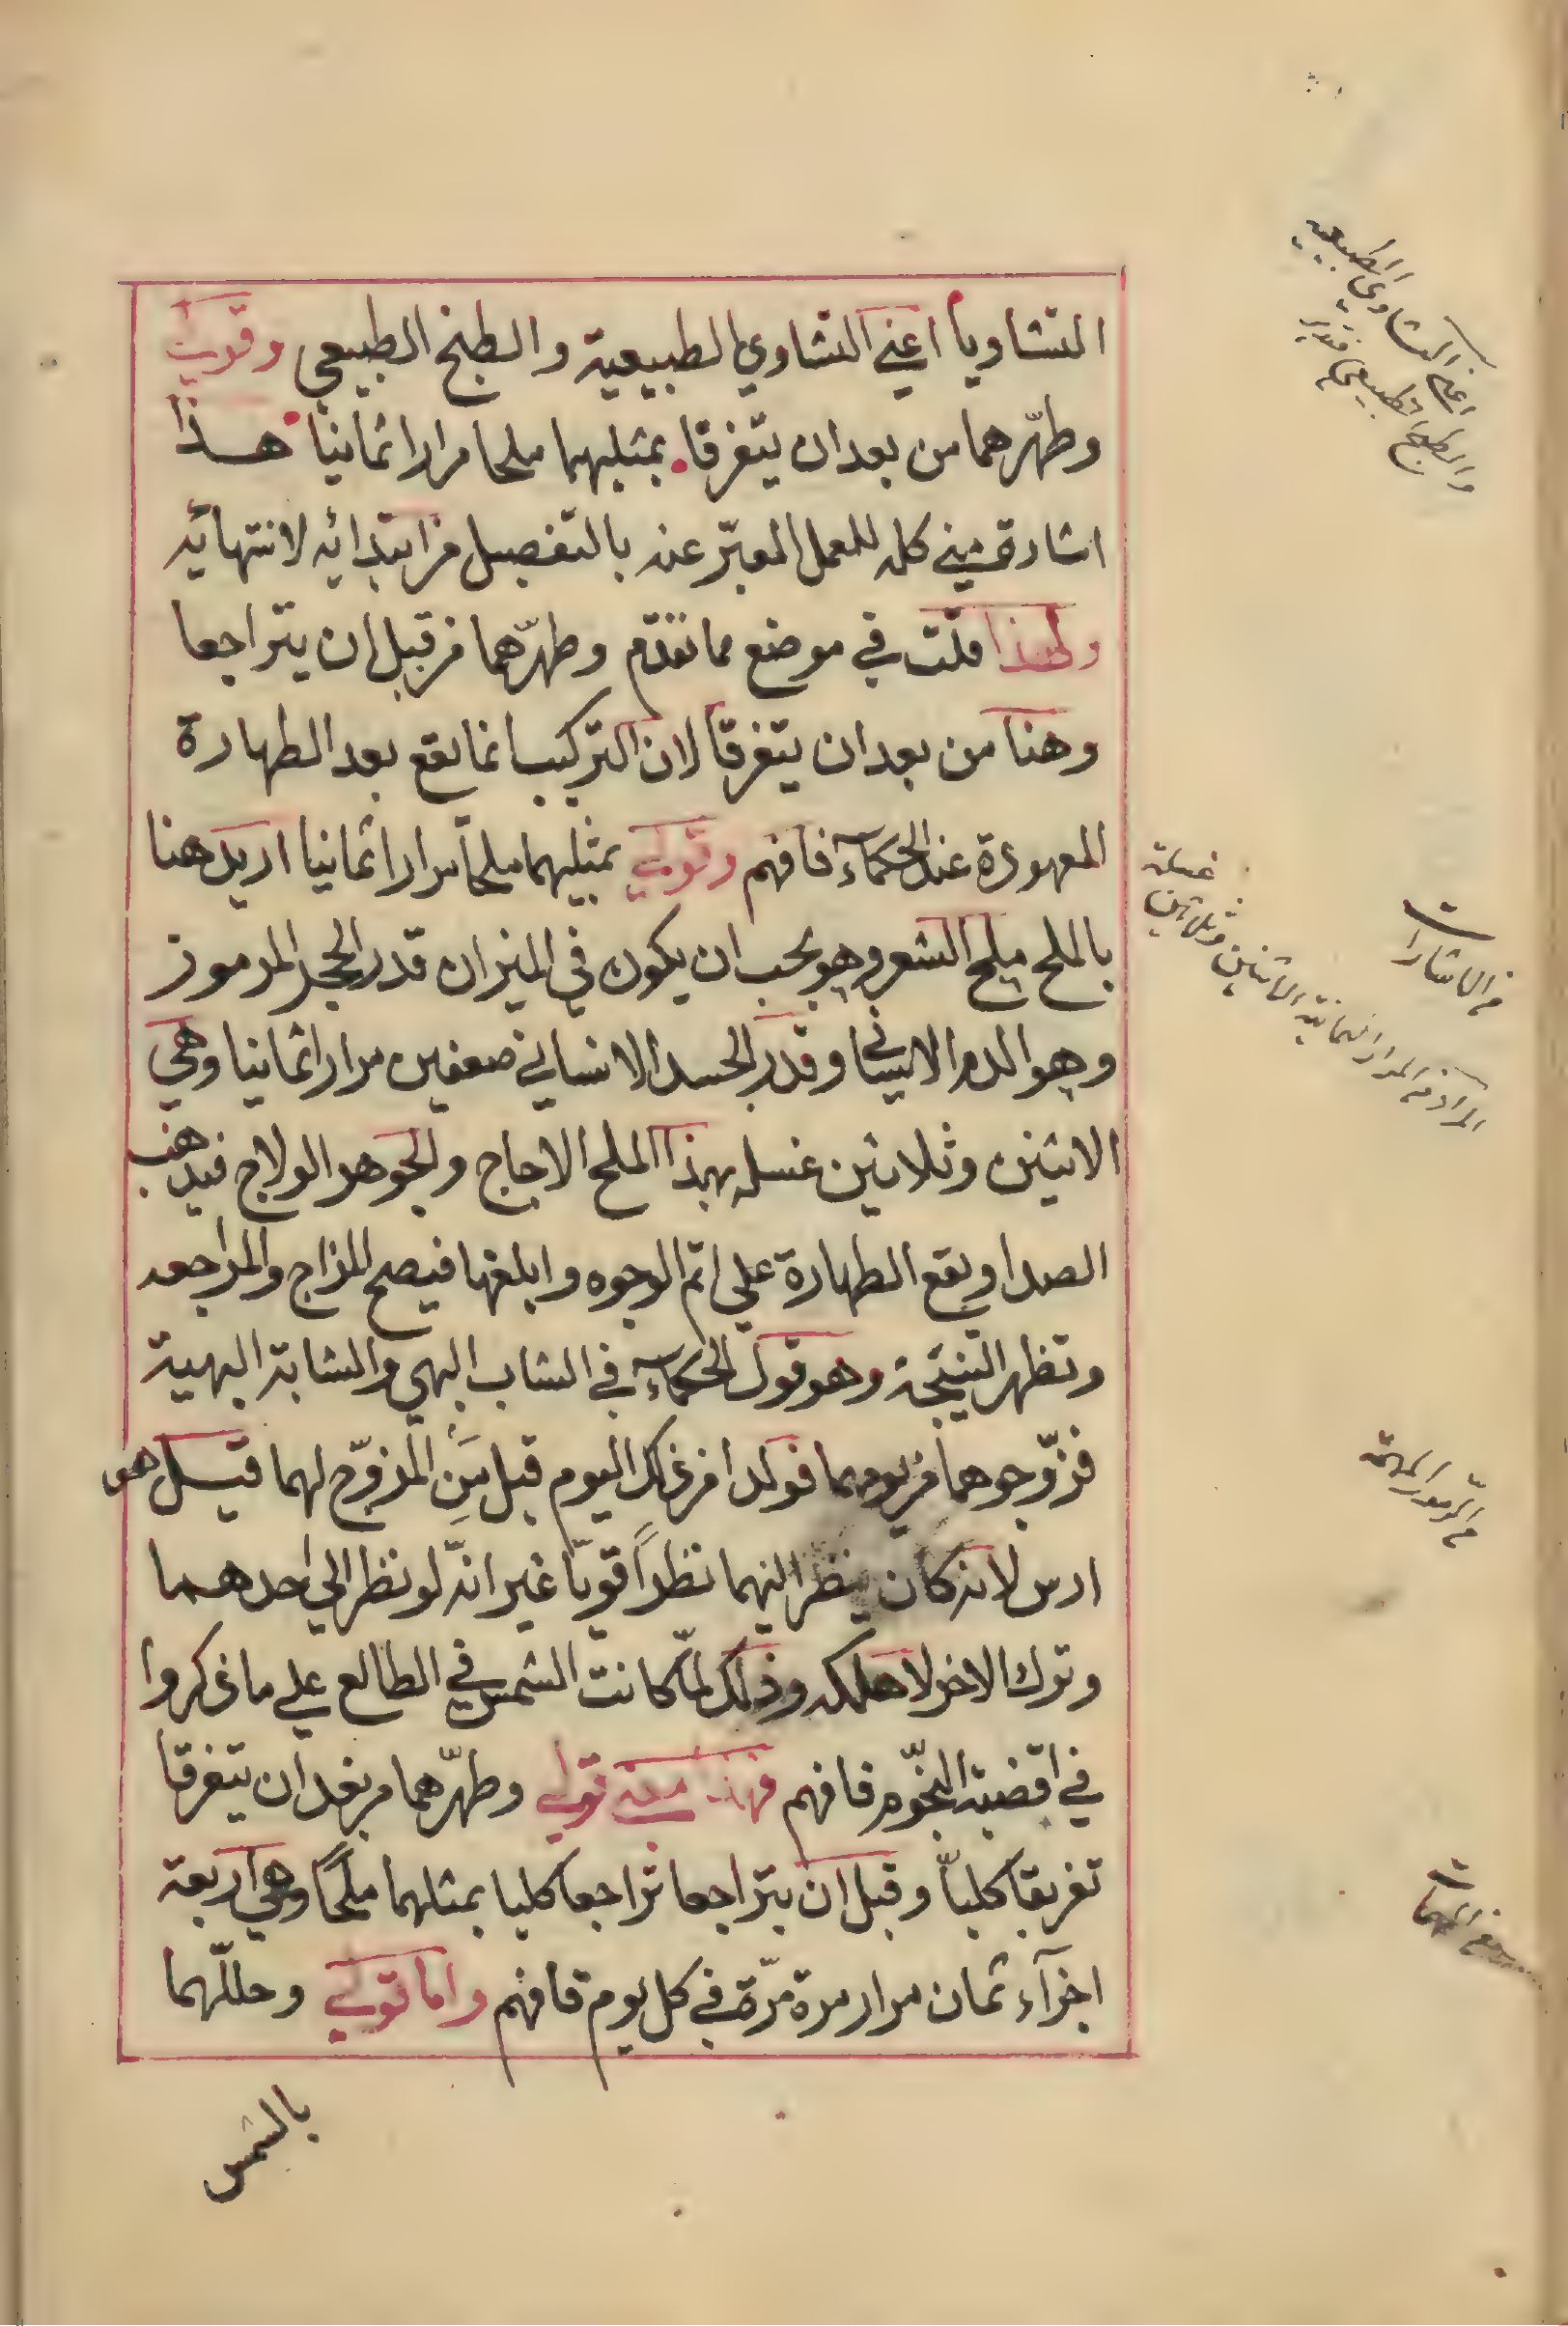 التشاويا اعني التشاوي الطبيعية والطبخ الطبيعي وقولي
وطهّرهما من بعد ان يتفرقا بمثليهما ملحا مرارا ثمانيا هذا
اشارة مني كله للعمل المعبّر عنه بالتفصيل من ابتدائه لانتهائه
ولهذا قلت في موضع مما تقدم وطهرّهما من قبل ان يتراجعا
وهنا من بعد ان يتفرقا لان التركيب انما يقع بعد الطهارة
المعهودة عند الحكمآء فافهم وقولي بمثليهما ملحاً مرارا ثمانيا اريد هنا
بالملح ملح الشعر وهو يجب ان يكون في الميزان قدر الحجر المرموز
وهو الدم الانساني وقدر الجسد الانساني ضعفين مرارا ثمانيا وهي
الاثنين وثلاثين غسله بهذا الملح الاجاج والجوهر الولاج فيذهب
الصدا ويقع الطهارة علي اتم الوجوه وابلغها فيصح المزاج والمراجعه
وتظهر النتيجة وهو قول الحكمآء في الشاب البهي والشابة البهية
فزّوجوهما من يومهما فولدا من ذلك اليوم قبل مَنِ المزوّج لهما قيل هو
ارس لانه كان ينظر اليهما نظراً قويّا غير انّه لو نظر الي احدهما
وترك الاخر لاهلكه وذلك لمّا كانت الشمس في الطالع علي ما ذكروا
في اقضية النجّوم فافهم فهذا معنى قولي وطهّرهما من بعد ان يتفرقا
تفريقاً كلياّ وقبل ان يتراجعا تراجعا كليا بمثلهما ملحًا وهي اربعة
اجزآء ثمان مرار مرة مرّة في كل يوم فافهم واما قولي وحللّهما
بالشمس
اعني التشاوي الطبيعيه
والطبخ الطبيعي
من الاشارات
المراد من المرار الثمانية الاثنين وثلاثين
غسلة
من الرموز المهمّة